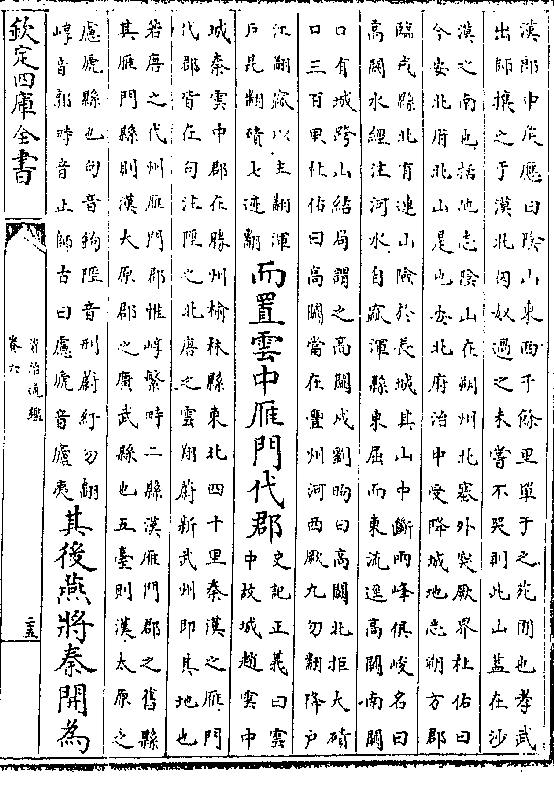 漢郎中侯應曰陰山東西千餘里單于之苑囿也孝武
出師攘之于漠北匈奴過之未嘗不哭則此山蓋在沙
漠之南也括地志陰山在朔州北塞外突厥界杜佑曰
今安北府北山是也安北府治中受降城地志朔方郡
臨戎縣北有連山險於長城其山中斷兩峰俱峻名曰
高闕水經注河水自窳渾縣東屈而東流逕高闕南闕
口有城跨山結局謂之高闕戍劉昫曰高闕北拒大磧
口三百里杜佑曰高闕當在豐州河西厥九勿翻降户
江翻窳以主翻渾
戶昆翻磧七迹翻
而置雲中雁門代郡
史記正義曰雲
中故城趙雲中
城秦雲中郡在勝州榆林縣東北四十里秦漢之雁門
代郡皆在句注陘之北唐之雲朔蔚新武州即其地也
若唐之代州雁門郡惟崞繁畤二縣漢雁門郡之舊縣
其雁門縣則漢太原郡之廣武縣也五臺則漢太原之
慮虒縣也句音鉤陘音刑蔚紆勿翻
崞音郭畤音止師古曰慮虒音廬夷
其後燕將秦開為
欽定四庫全書
資治通鑑
卷六